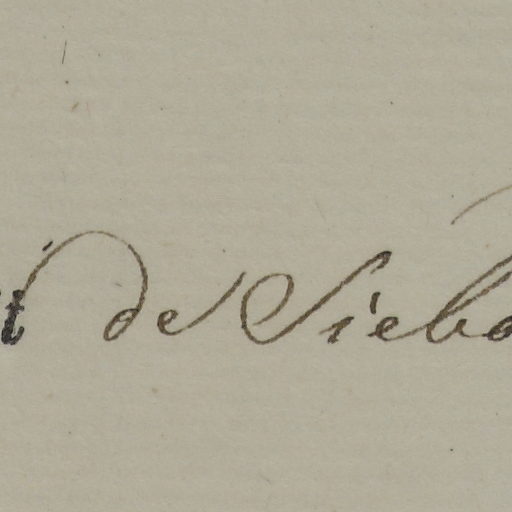 t de Siebo